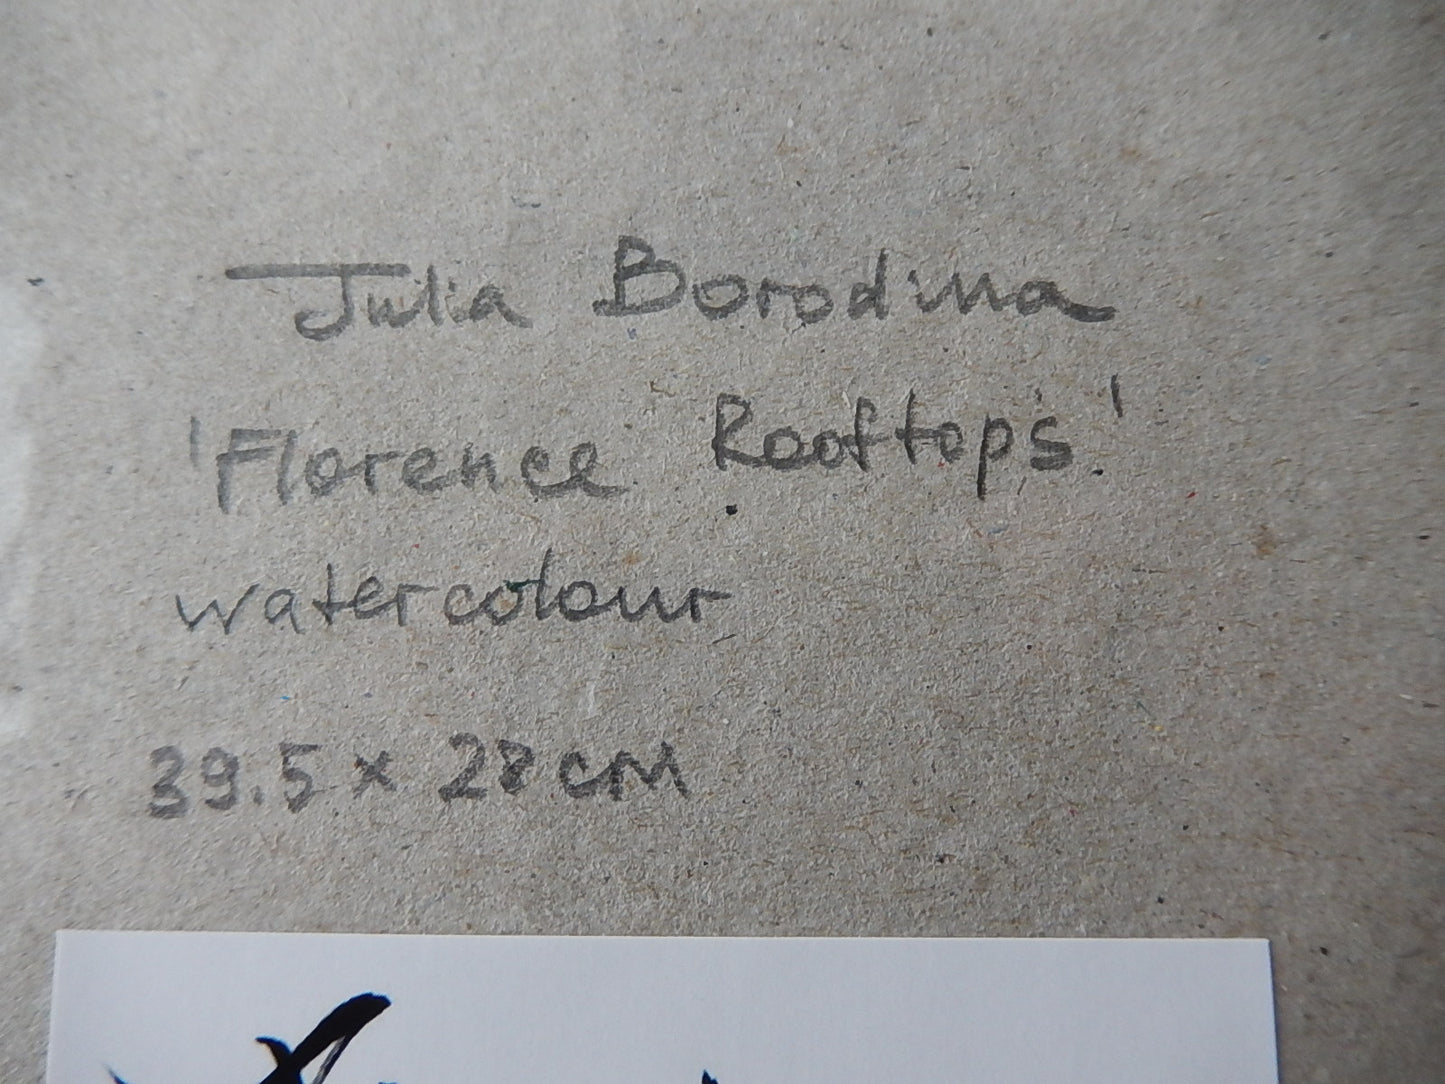 Julia Borodina
'Florence Rooftops.'
watercolour
39.5 x 28 cm